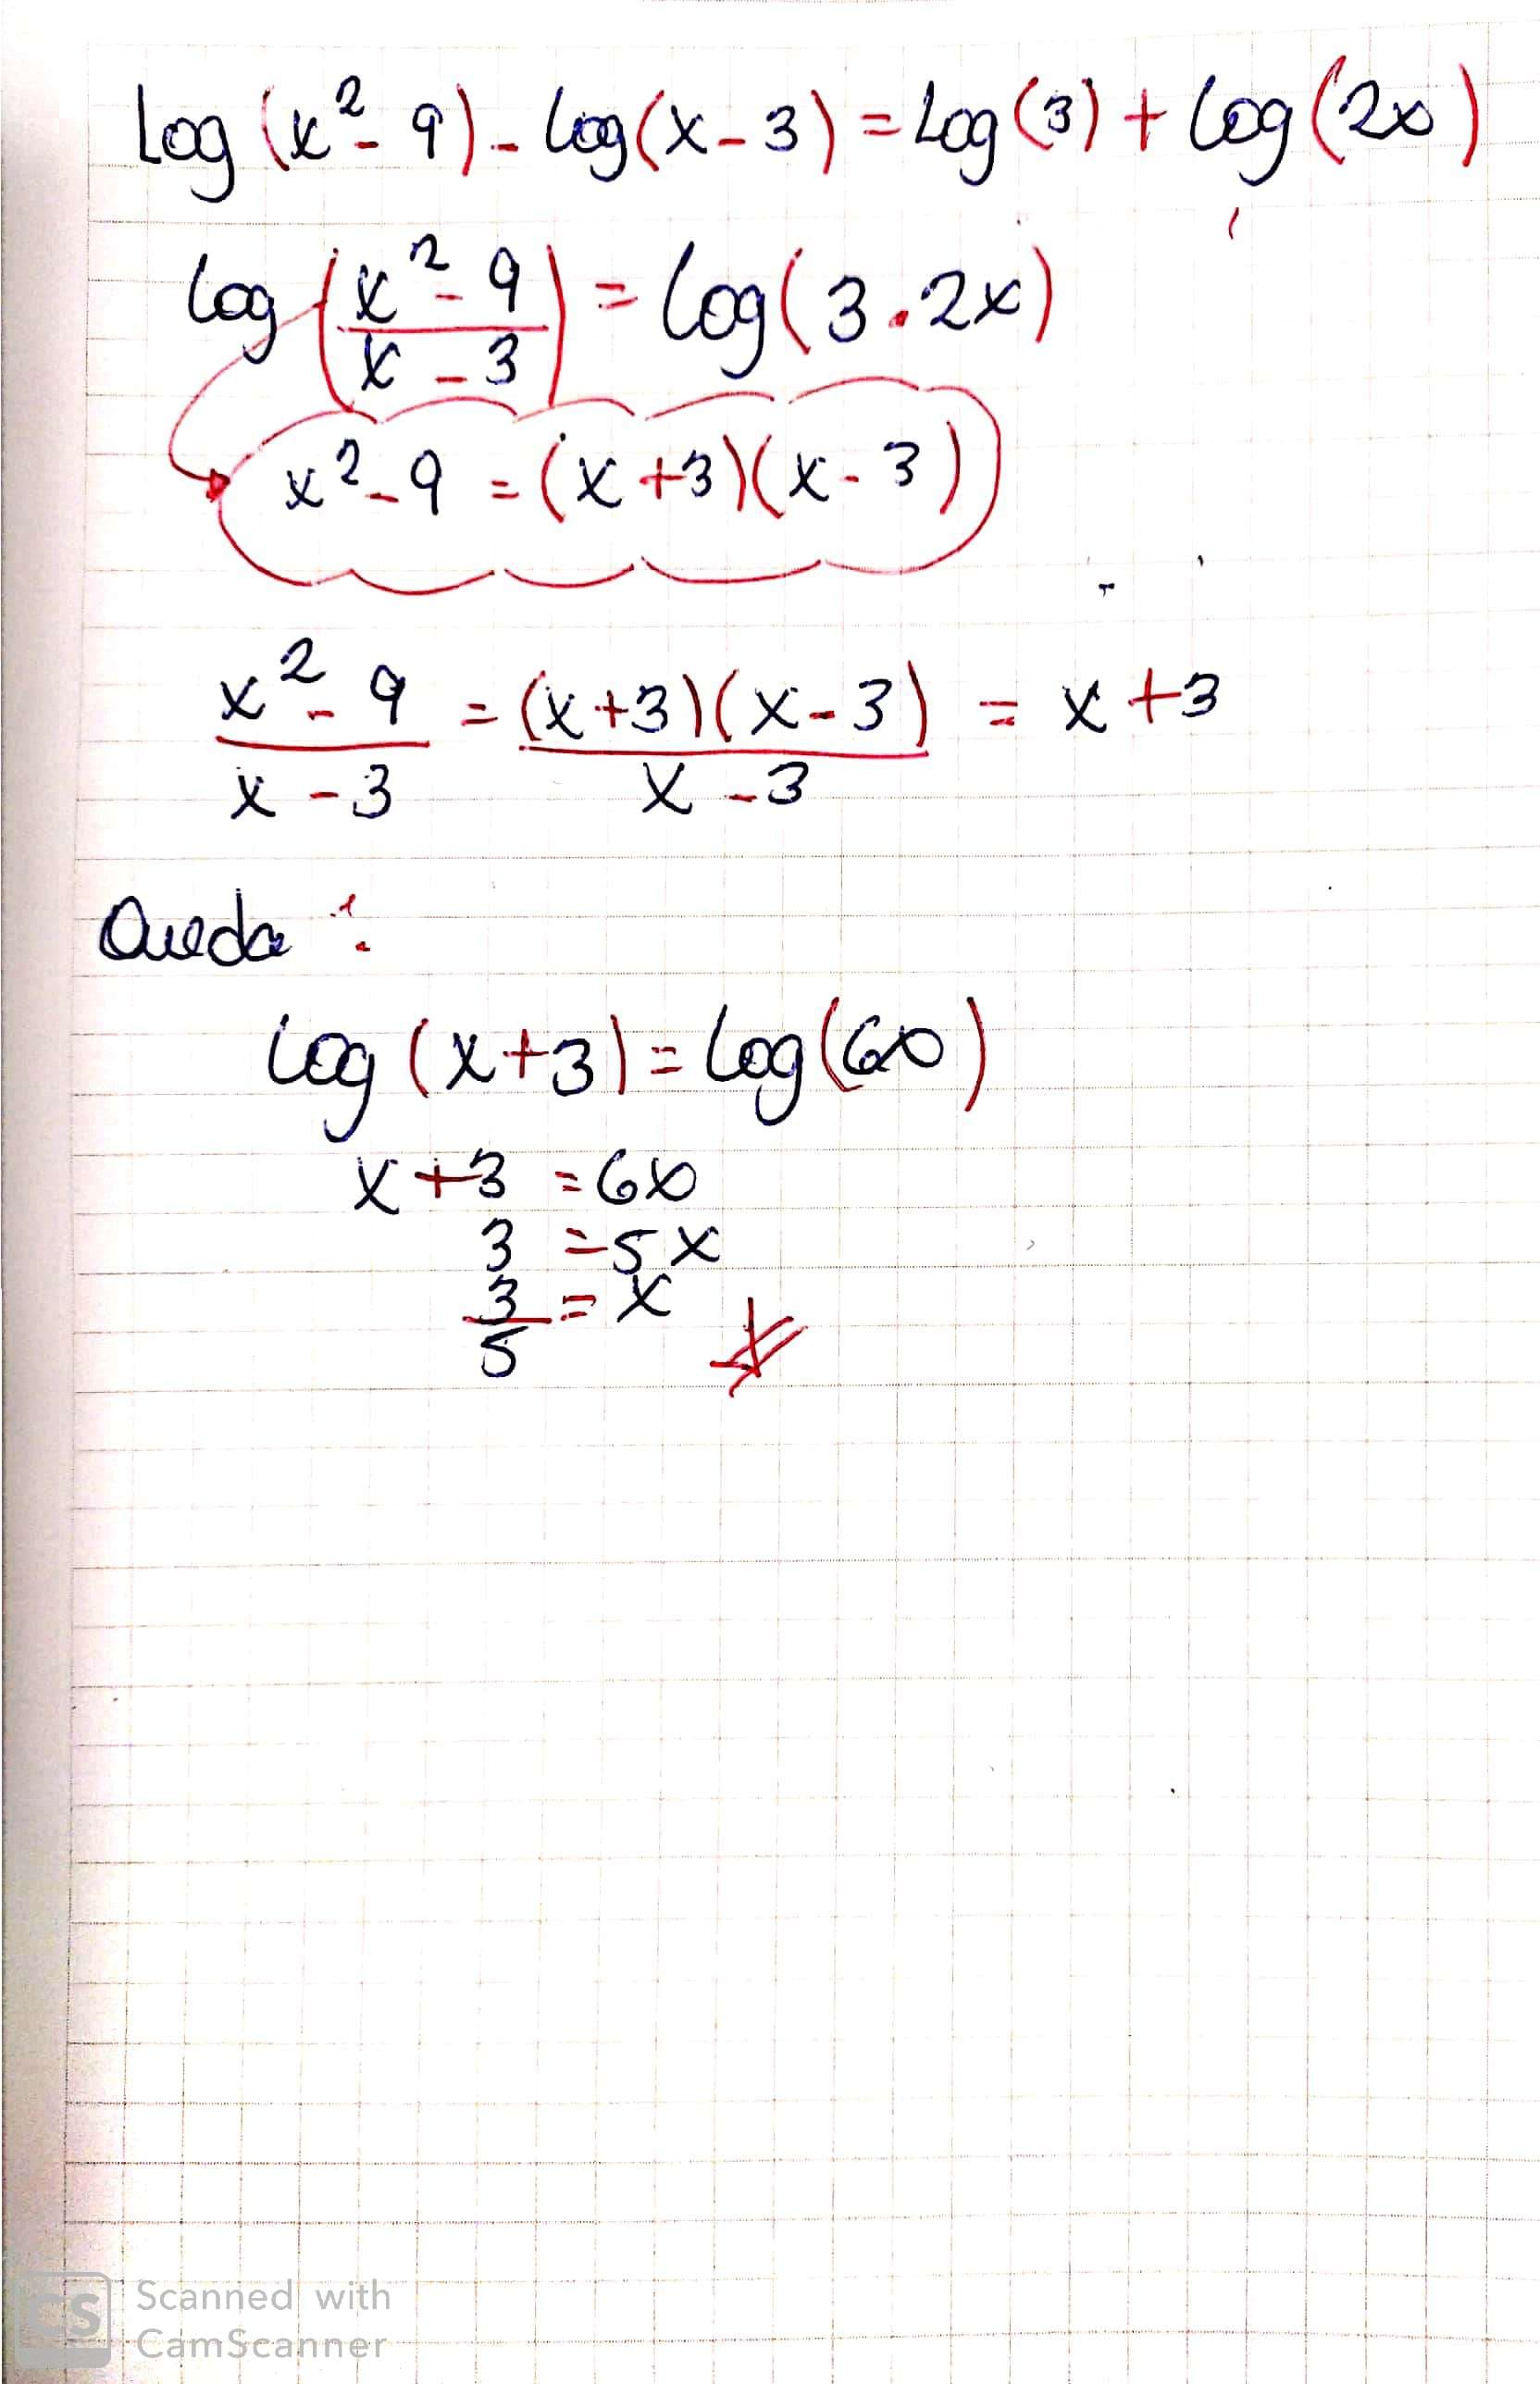 Log (x² - 9) - log(x - 3) = Log (3) + log (2x)
log (x² - 9 / x - 3) = log( 3 . 2x)
x² - 9 = (x + 3)(x - 3)
x² - 9 / x - 3 = (x + 3)(x - 3) / x - 3 = x + 3
Queda :
log (x + 3) = log (6x)
x + 3 = 6x
3 = 5x
3/5 = x
CS Scanned with
CamScanner